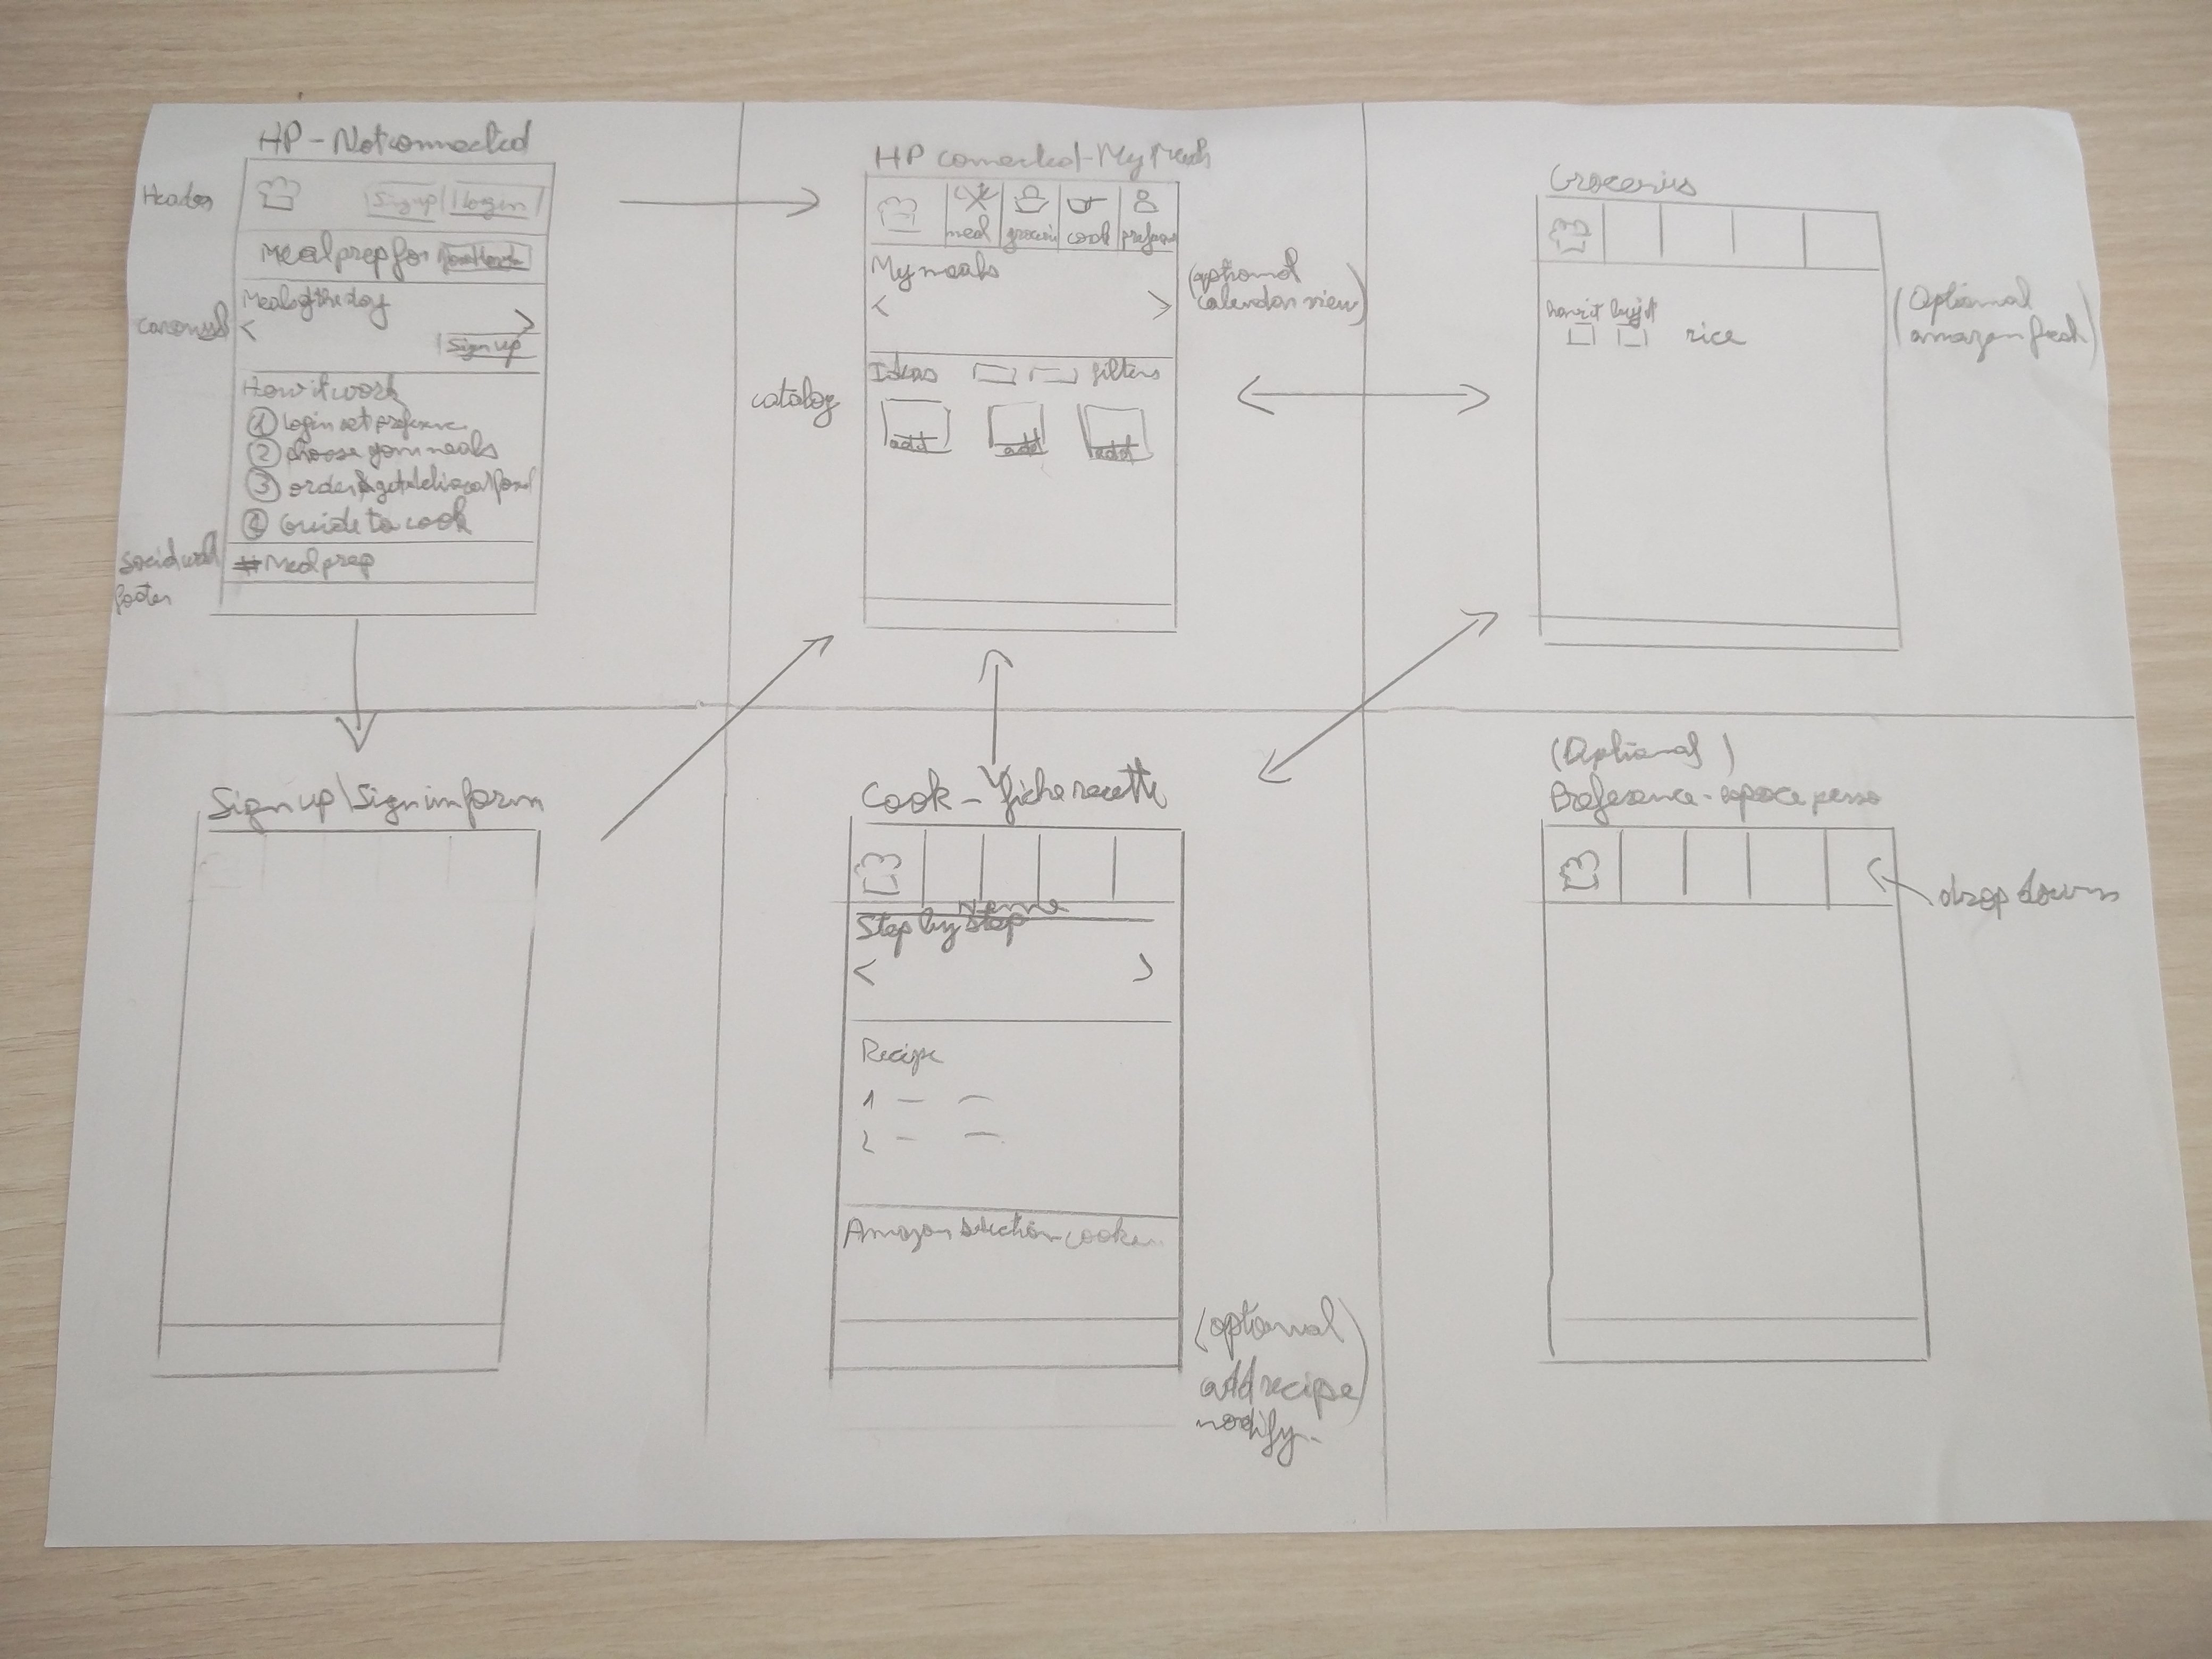 HP - Not connected
Header
Sign up Login
Meal prep for
Meal of the day
carousel
< >
Sign up
How it work
1 login set preference
2 choose your meals
3 order & get delivered food
4 Guide to cook
social wall
#Mealprep
footer
HP connected - My Meals
meal groceries cook preference
My meals
(optional calendar view)
< >
Ideas filters
catalog
add add add
Groceries
have it buy it
rice
(Optionnal amazon fresh)
Sign up \ Sign in form
Cook - fiche recette
Name
Step by step
< >
Recipe
1
2
Amazon selection
(optionnal
add recipe)
modify
(Optional)
Preference - espace perso
drop down